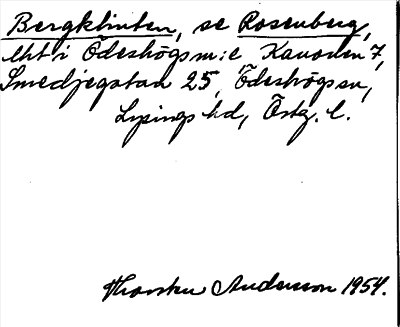 Bergklinten, se Rosenberg,
lht i Ödeshögs m:e, Kanonen 7,
Smedjegatan 25, Ödeshögs sn,
Lysings hd, Östg. l.
Thorsten Andersson 1954.